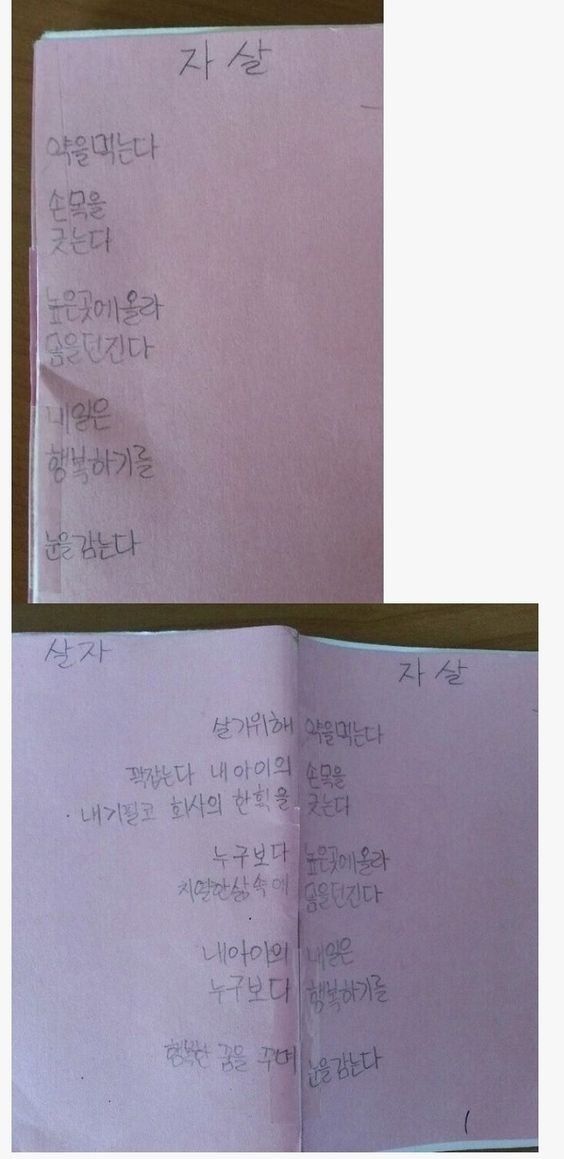 자살
약을먹는다
손목을
긋는다
높은곳에올라
몸을던진다
내일은
행복하기를
눈을감는다
살자
살기위해
꽉잡는다 내아이의
내기필코 회사의 한획을
누구보다
치열한삶속에
내아이의
누구보다
행복한 꿈을 꾸며
자살
약을먹는다
손목을
긋는다
높은곳에올라
몸을던진다
내일은
행복하기를
눈을감는다